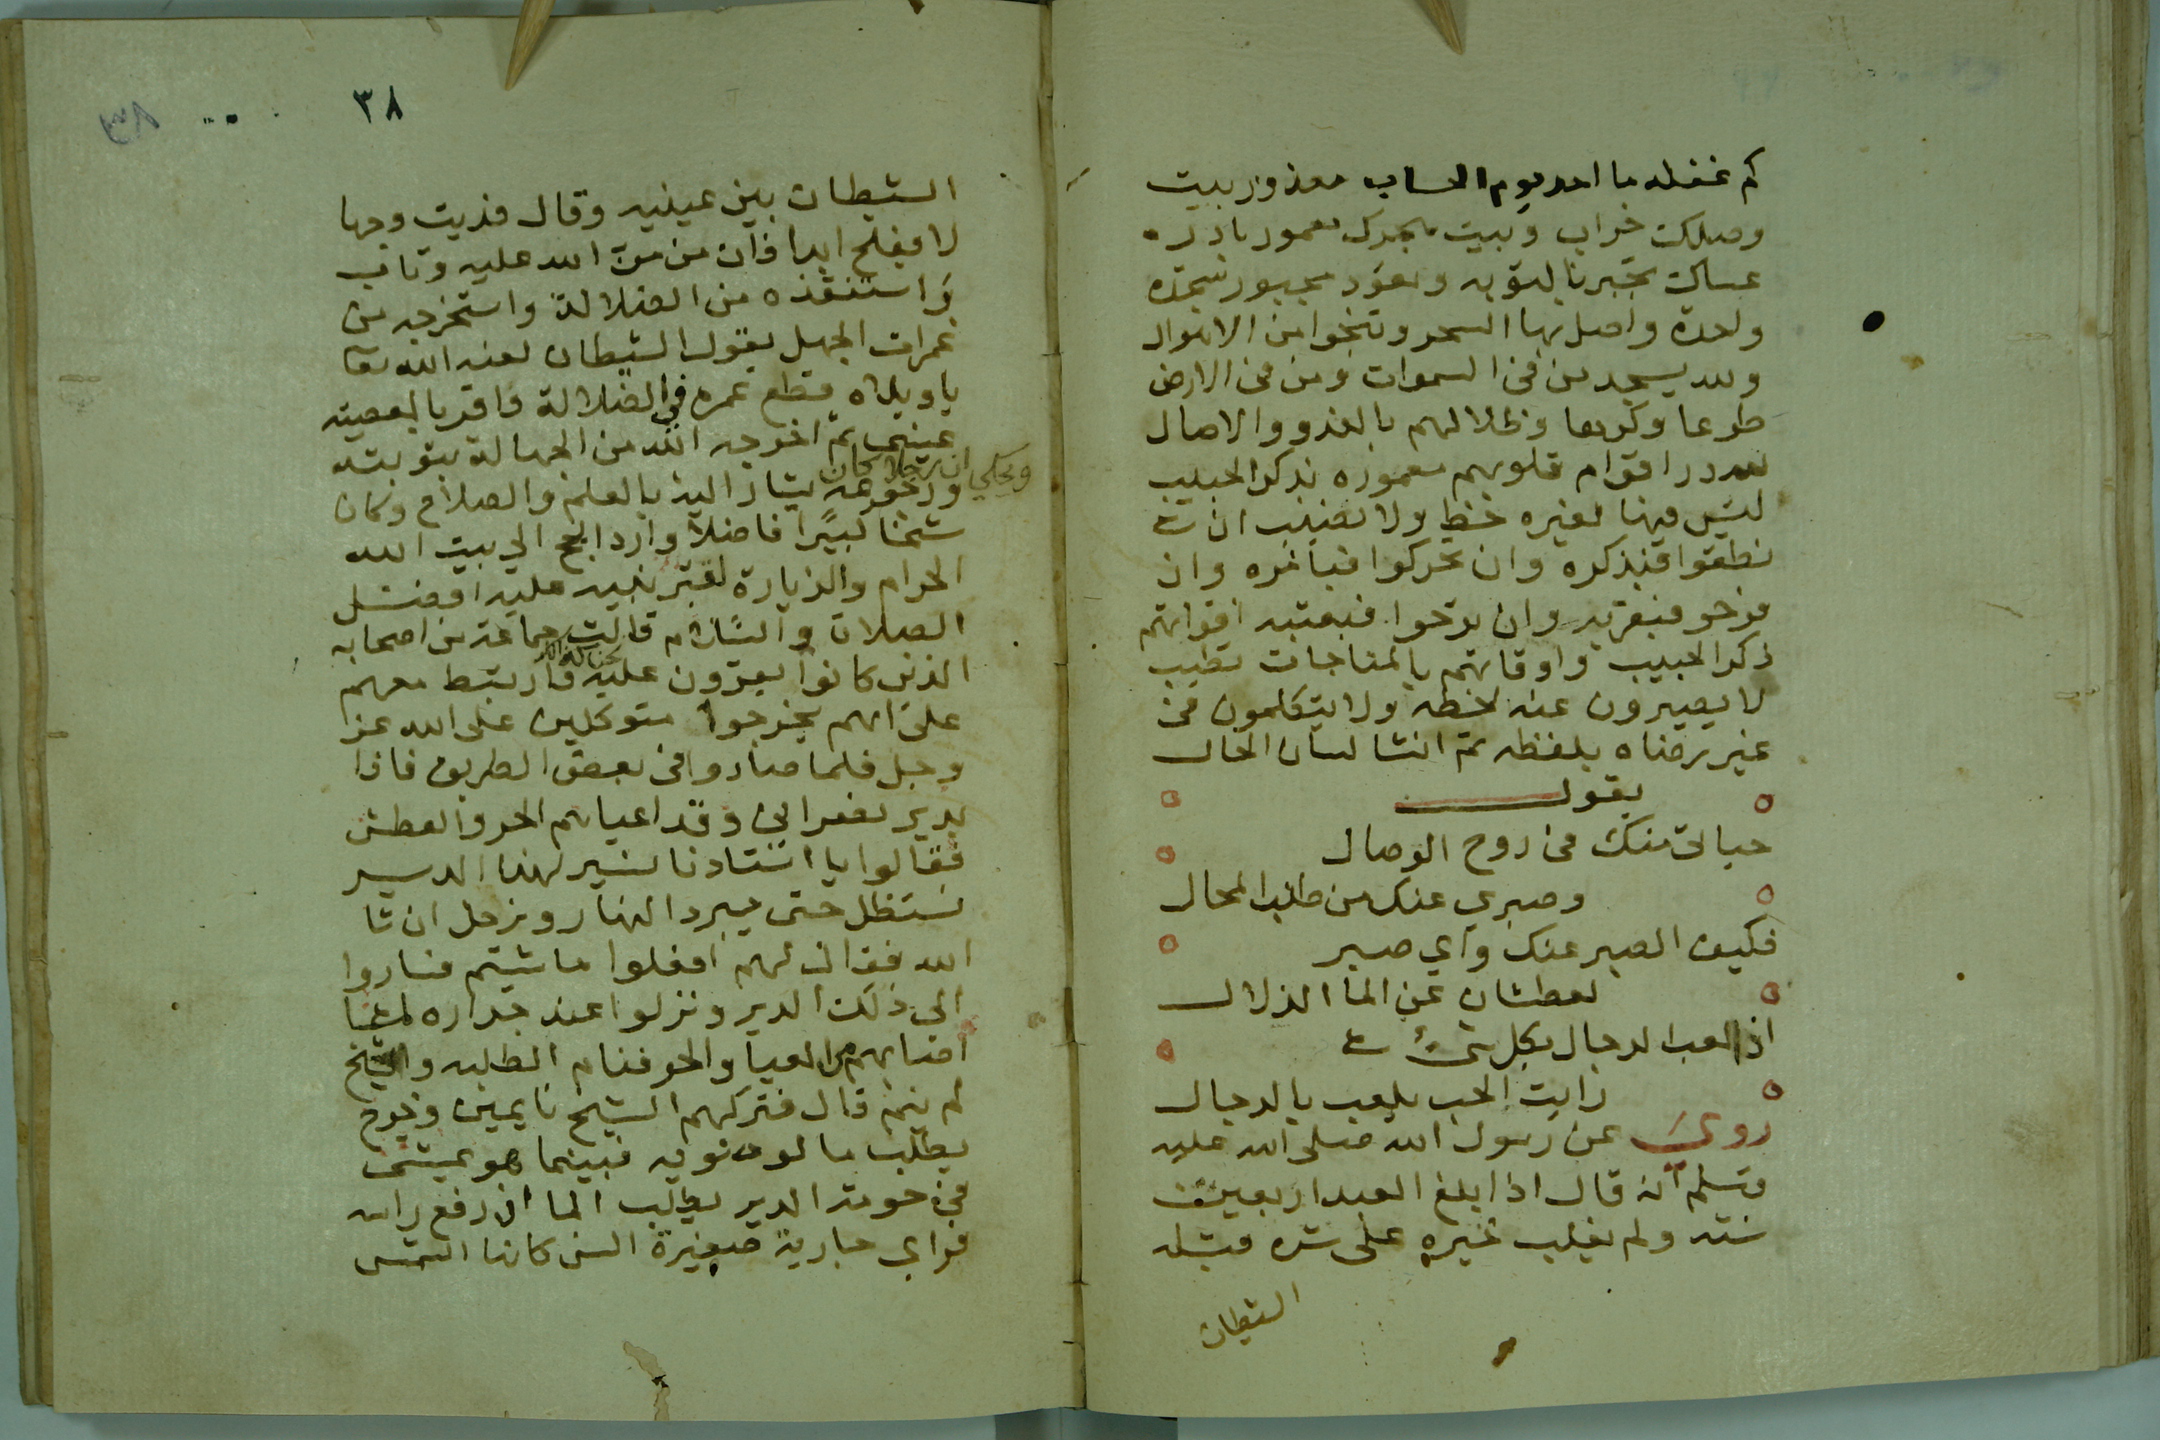 كم غفله ما احد يوم الحساب معذور بيت
وصلك خراب وبيت هجرك معمور بادر
عساك تجبر بالتوبه وتعود مجبور سجدة
واحدة واصل بها السحر وتنجوا من الاهوال
ولله يسجد من فى السموات ومن فى الارض
طوعا وكرها وظلالهم بالغدو والاصال
لله در اقوام قلوبهم معموره بذكر الحبيب
ليس فيها لغيره حظ ولا نصيب ان
نطقوا فبذكره وان تحركوا فبامره وان
فرحو فبقربه وان ترحوا فبعتبه اقواتهم
ذكر الحبيب واوقاتهم بالمناجات تطيب
لا يصبرون عنه لحظه ولا يتكلمون فى
غير رضاه بلفظه ثم انشا لسان الحال
يقول
حياتى منك فى روح الوصال
وصبري عنك من طلب المحال
فكيف الصبر عنك واي صبر
لعطشان عن الما الزلال
اذا لعب الرجال بكل شىء
رايت الحب يلعب بالرجال
روى عن رسول الله صلى الله عليه
وسلم انه قال اذا بلغ العبد اربعين
سنه ولم يغلب خيره على شره قبله
الشيطان
٣٨
٣٨
الشيطان بين عينيه وقال فديت وجها
لا يفلح ابدا فان من منّ الله عليه وتاب
واستنقذه من الضلالة واستخرجه من
غمرات الجهل يقول الشيطان لعنه الله تعا
ياويلاه قطع عمره في الضلالة واقر بالمعصيته
عينى ثم اخرجه الله من الجهالة بتوبته
ويحكي ان رجلا كان
يشار اليه بالعلم والصلاح وكان
شيخا كبيرا فاضلا واراد الحج الى بيت الله
الحرام والزيارة لقبر نبيه عليه افضل
الصلات والسلام قالت جماعة من اصحابه
الذين كانوا يقرون عليه فارتبط معهم
على انهم يخرجوا متوكلين على الله عز
وجل فلما صاروا فى بعض الطريق فاذا
بدير نصرانى وقد اعياهم الحر والعطش
فقالوا يا استادنا نسير لهذا الدير
نستظل حتى يبرد النهار ونرحل ان شا
الله فقال لهم افعلوا ما شيتم فساروا
الى ذلك الدير ونزلوا عند جداره لما
اصابهم من العيا والحر فنام الطلبه والشيخ
لم ينم قال فتركهم الشيخ نايمين وخرج
يطلب ما لوضوئه فبينما هو يمشى
فى حومة الدير يطلب الما اذ رفع راسه
فراى جارية صغيرة السن كانها الشمس